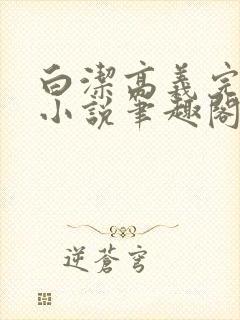 白潔高義完
小說筆趣閣
逆蒼穹